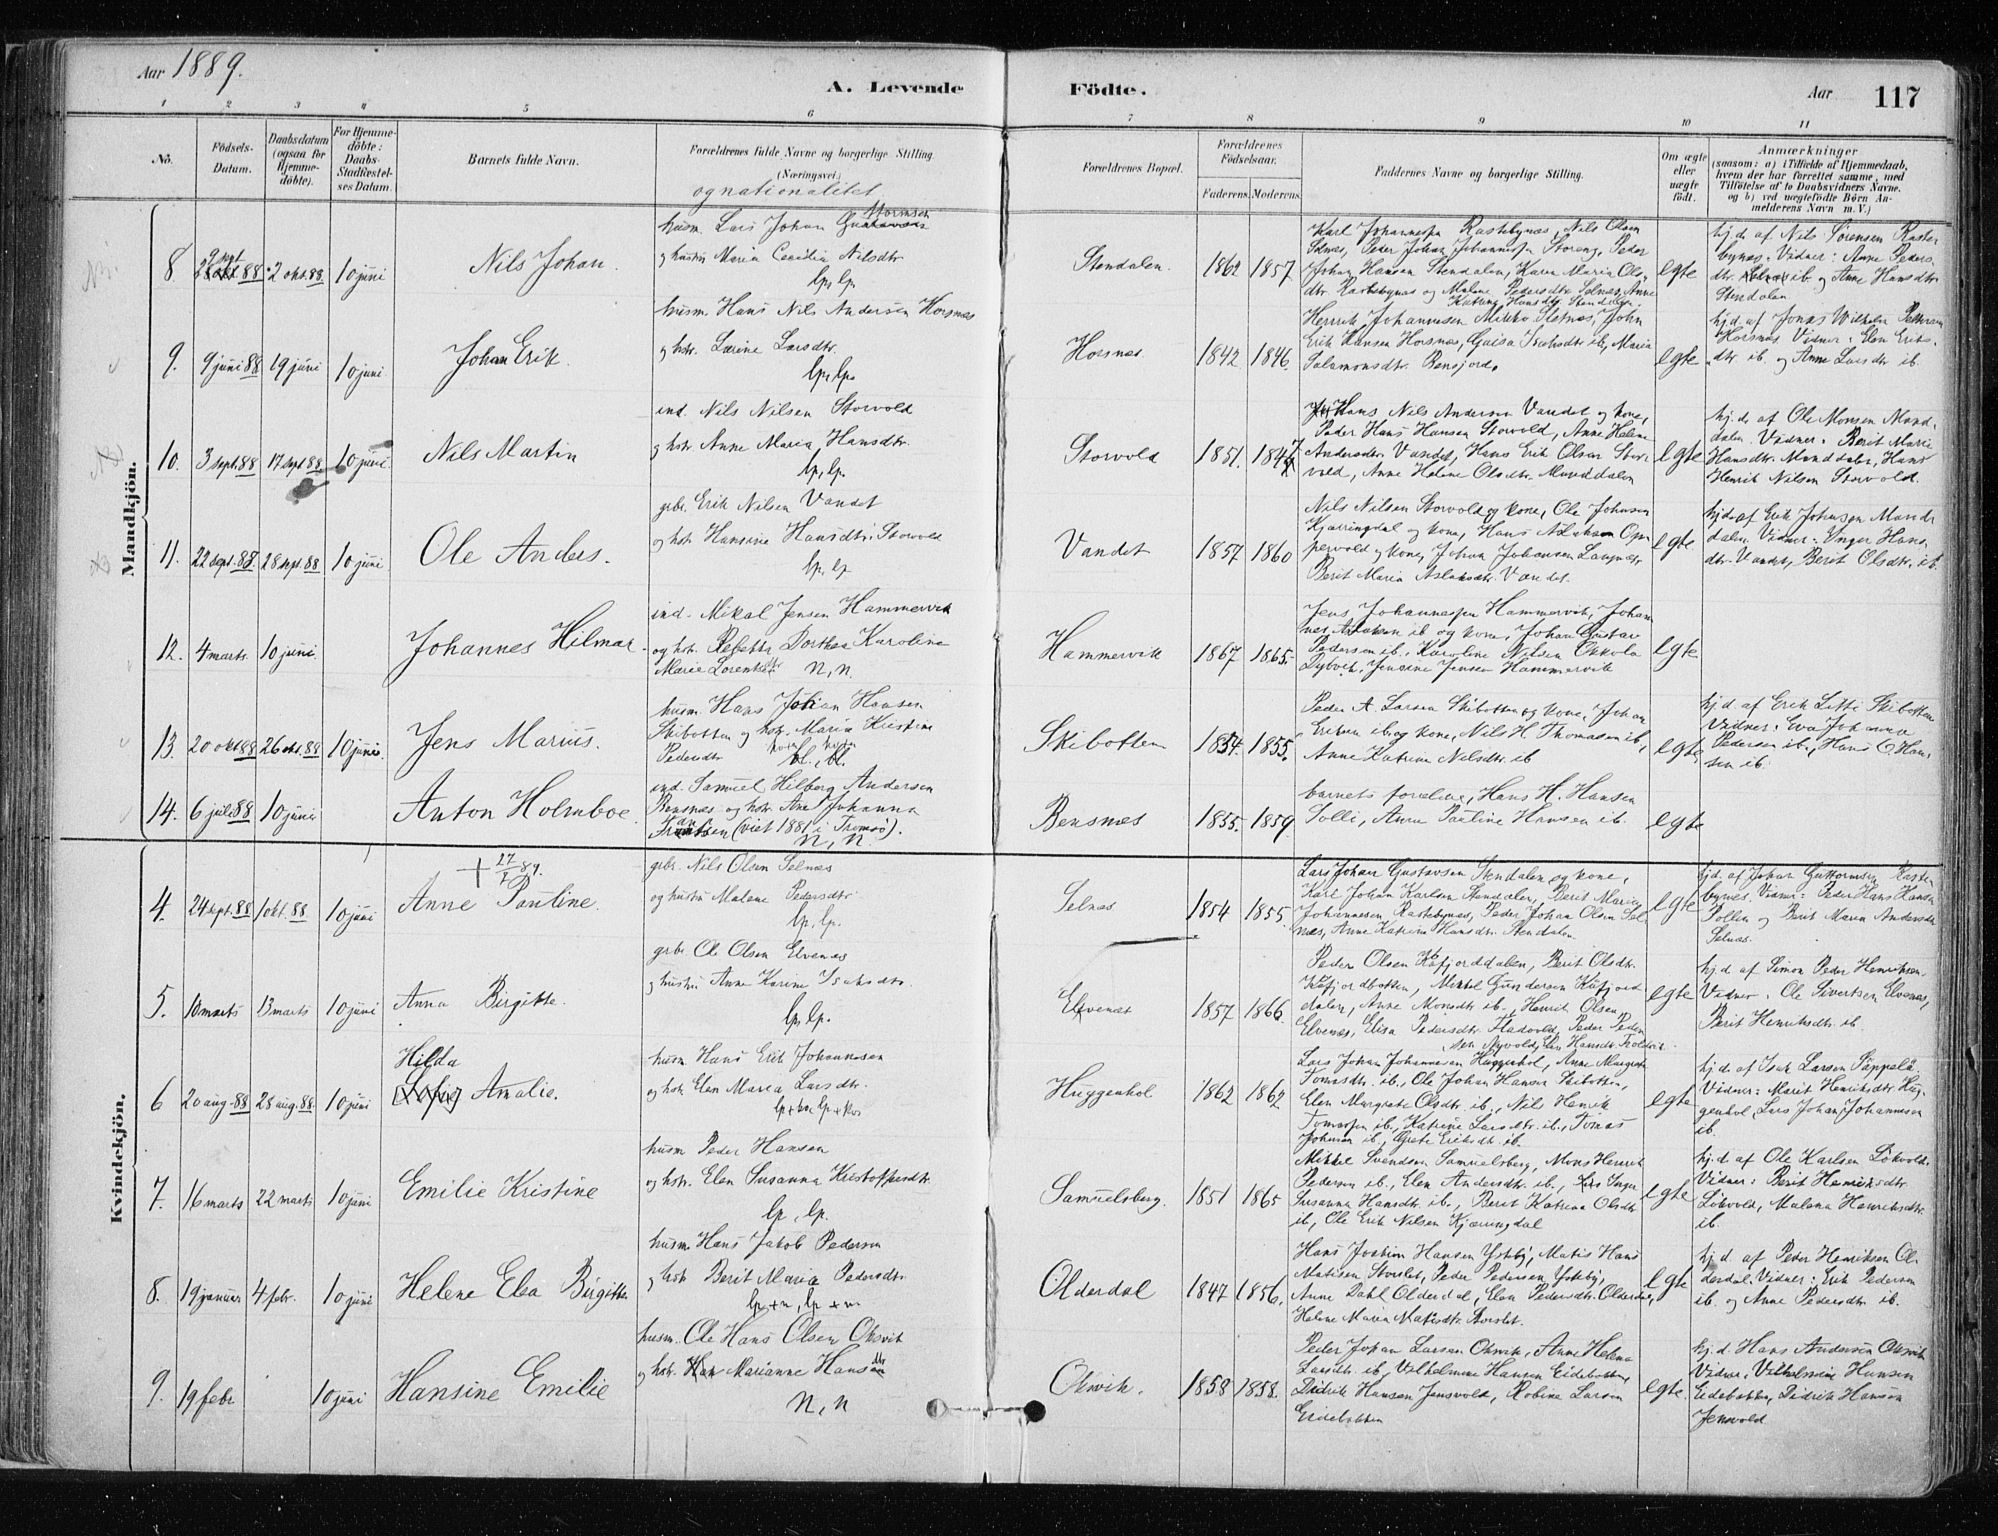 Aar 1889.
A. Levende Födte.
Aar 117
1 2 3 4 5 6 7 8 9 10 11
No.
Födsels-Datum.
Daabsdatum (ogsaa for Hjemme-döbte).
For Hjemme-döbte: Daabs-Stadfæstel-ses Datum.
Barnets fulde Navn.
Forældrenes fulde Navne og borgerlige Stilling.
(Næringsvei)
og nationalitet
Forældrenes Bopæl.
Forældrenes Födselsaar.
Faderens. Moderens.
Faddernes Navne og borgerlige Stilling.
Om ægte eller uægte födt.
Anmærkninger
(saasom: a) i Tilfælde af Hjemmedaab, hvem der har forrettet samme, med Tilföielse af to Daabsvidners Navne. og b) ved uægtefödte Börn An-melderens Navn m. V.)
Mandkjön.
8 88 2 okt. 88 10 juni
Nils Johan.
husm. Lars Johan
og hustru Maria Cecilia Nilsdtr
lp, lp
Stendalen. 1862 1857.
Karl Johannessen Rastebynes, Nils Olsen
Selnæs, Peder Johan Johannessen Storeng, Peder
Johan Hansen Stendalen, Karen Maria Ols-
dtr Rastebynæs og Malene Pedersdtr Selnæs, Anne
Katrine Hansdtr. Stendalen.
egte
hj.d. af Nils Sörensen Raste
bynes. Vidner: Anne Peders-
dtr. ib og Anne Hansdtr.
Stendalen
9. 9 juni 88 19 juni 10 juni
Johan Erik.
husm. Hans Nils Andersen Horsnæs
og hstr. Larine Larsdtr.
lp, lp.
Horsnæs 1842 1846.
Henrik Johannesen Mikko Sletnes, John
Erik Hansen Horsnæs, Gaisa Isaksdtr ib, Maria
Salamonsdtr. Bensjord.
egte
hj.d. af Jonas Wilhelm Pettersen
Horsnæs Vidner: Elen Eriks-
dtr. ib og Anne Larsdtr ib.
10. 3 sept. 88 17 sept 88 10 juni
Nils Martin
ind. Nils Nilsen Storvold
og hstr Anne Maria Hansdtr.
lp, lp.
Storvold 1851. 1847
Hans Nils Andersen Vandet og kone,
Peder Hans Hansen Storvold, Anne Helene
Andersdtr. Vandet, Hans Erik Olsen Stor-
vold, Anne Helene Olsdtr. Manddalen
egte
hj.d. af Ole Monsen Mand-
dalen. Vidner: Berit Marie
Hansdtr. Manddalen, Hans
Henrik Nilsen Storvold.
11. 22 sept. 88. 28 sept. 88 10 juni
Ole Anders.
gebr. Erik Nilsen Vandet
og hstr. Hansine Hansdtr. Storvold
lp, lp
Vandet 1857 1860
Nils Nilsen Storvold og kone, Ole Johnsen
Kjærringdal og kone, Hans Aslaksen Op-
pervold og kone, Johan Johansen Langnæs,
Berit Maria Aslaksdtr. Vandet.
egte
hj.d. af Erik Johnsen Mand
dalen. Vidner: Inger Hans-
dtr. Vandet, Berit Olsdtr. ib.
12. 4 marts 10 juni.
Johannes Hilmar.
ind. Mikal Jensen Hammervik
og hstr. Rebekka Dorthea Karoline
Marie Lorentzd
n, n.
Hammervik 1867 1865.
Jens Johannessen Hammervik, Johan
nes Aslaksen ib og kone, Johan Gustav
Pedersen ib., Karoline Nilsen Okkola
Dybvik, Jensine Jensen Hammervik
egte
13. 20 okt 88 26 okt. 88 10 juni.
Jens Marius.
husm. Hans Johan Hansen
Skibotten og hstr. Maria Kristine
Pedersdtr kven, kven
Skibotten 1854. 1855.
Peder A. Larsen Skibotten og kone, Johan
Eriksen ib og kone, Nils H. Thomasen ib,
Anne Katrine Nilsdtr. ib
egte
hj.d. af Erik Litti Skibotten
Vidner: Eva Johanna
Pedersen ib., Hans O Han-
sen ib.
14. 6 juli 88 10 juni
Anton Holmboe.
ind. Samuel Hilberg Andersen
Bensnæs og hstr. Ane Johanna
(viet 1881 i Tromsö).
n, n.
Bensnæs 1855. 1859
barnets forældre, Hans H. Hansen
Solli, Anne Pauline Hansen ib.
egte
Kvindekjön.
4. 24 sept. 88 1 okt. 88 10 juni
+ 27/7 89.
Anne Pauline.
gebr. Nils Olsen Selnæs
og hustru Malene Pedersdtr
lp, lp.
Selnæs 1854 1855.
Lars Johan Gustavsen Stendalen og kone,
Karl Johan Karlsen Stendalen, Berit Maria
Johannesen Rastebynæs, Peder Johan Olsen Sel
næs, Anne Katrine Hansdtr. Stendalen.
egte
hj.d. af Johan Guttormsen Raste
bynes. Vidner: Peder Hans Hansen
Pollen og Berit Maria Andersdtr
Selnæs.
5. 10 marts 13 marts 10 juni
Anna Birgitte.
gebr Ole Olsen Elvenæs
og hustru Anne Karine Isaksdtr.
lp, lp.
Elvenæs 1857 1866.
Peder Olsen Kåfjorddalen, Berit Olsdtr.
Kåfjordbotten, Mikkel Gundersen Kåfjord
dalen, Anne Monsdtr. ib., Henrik Olsen
Elvenæs, Elisa Pedersdtr. Fladvold, Peder Peder
sen Nyvold, Elen Hansdtr. Troldvik
egte
hj.d. af Simon Peder Henriksen.
Vidner: Ole Sivertsen Elvenæs,
Berit Henriksdtr. ib.
6 20 aug. 88 28 aug. 88. 10 juni
Hilda
[Sofie] Amalie.
husm. Hans Erik Johannesen
og hstr. Elen Marea Larsdtr.
lp + kve lp + kve
Huggenhol 1862 1862
Lars Johan Johannesen Huggenhol, Anne Margrete
Tomasdtr. ib., Ole Johan Hansen Skibotten,
Elen Margrete Olsdtr. ib., Nils Henrik
Tomassen ib., Katrine Larsdtr. ib., Tomas
Johnsen ib., Grete Eriksdtr. ib.
egte
hj.d. af Isak Larsen Säppelä
Vidner: Marit Henriksdtr. Hug-
genhol, Lars Johan Johannesen
ib.
7. 16 marts 22 marts 10 juni
Emilie Kristine
husm. Peder Hansen
og hstr. Elen Susanna Kristoffersdtr.
lp, lp.
Samuelsberg. 1851 1865
Mikkel Svendsen Samuelsberg, Mons Henrik
Pedersen ib., Elen Andersdtr. ib., Inger
Susanna Hansdtr. ib., Berit Katrine Olsdtr
ib, Ole Erik Nilsen Kjærringdal
egte
hj.d. af Ole Karlsen Lökvold.
Vidner: Berit Henriksdtr.
Lökvold, Malena Henriksdtr.
ib.
8. 19 januar 4 febr. 10 juni
Helene Elea Birgitte
husm. Hans Jakob Pedersen
og hstr Berit Maria Pedersdtr.
lp + n, lp + n.
Olderdal 1847 1856.
Hans Joakim Hansen Ysteby, Matis Hans
Matisen Storslet, Peder Pedersen Ysteby,
Anne Dahl Olderdal, Elen Pedersdtr. Olderdal,
Helene Maria Matisdtr. Storslet.
egte
hj.d. af Peder Henriksen Ol
derdal. Vidner: Erik Pedersen
ib. og Anne Pedersdtr. ib.
9. 19 febr 10 juni
Hansine Emilie
husm. Ole Hans Olsen Olsvik
og hstr. Marianne Hansdtr
n, n
Olsvik. 1858 1858.
Peder Johan Larsen Olsvik, Anne Helena
Larsdtr. ib, Vilhelmine Hansen Eidebotten,
Didrik Hansen Jensvold, Robine Larsen
Eidebotten
egte.
hj.d. Hans Andersen Olsvik
Vidner: Vilhelmine Hansen
Eidebotten, Didrik Hansen
Jensvold